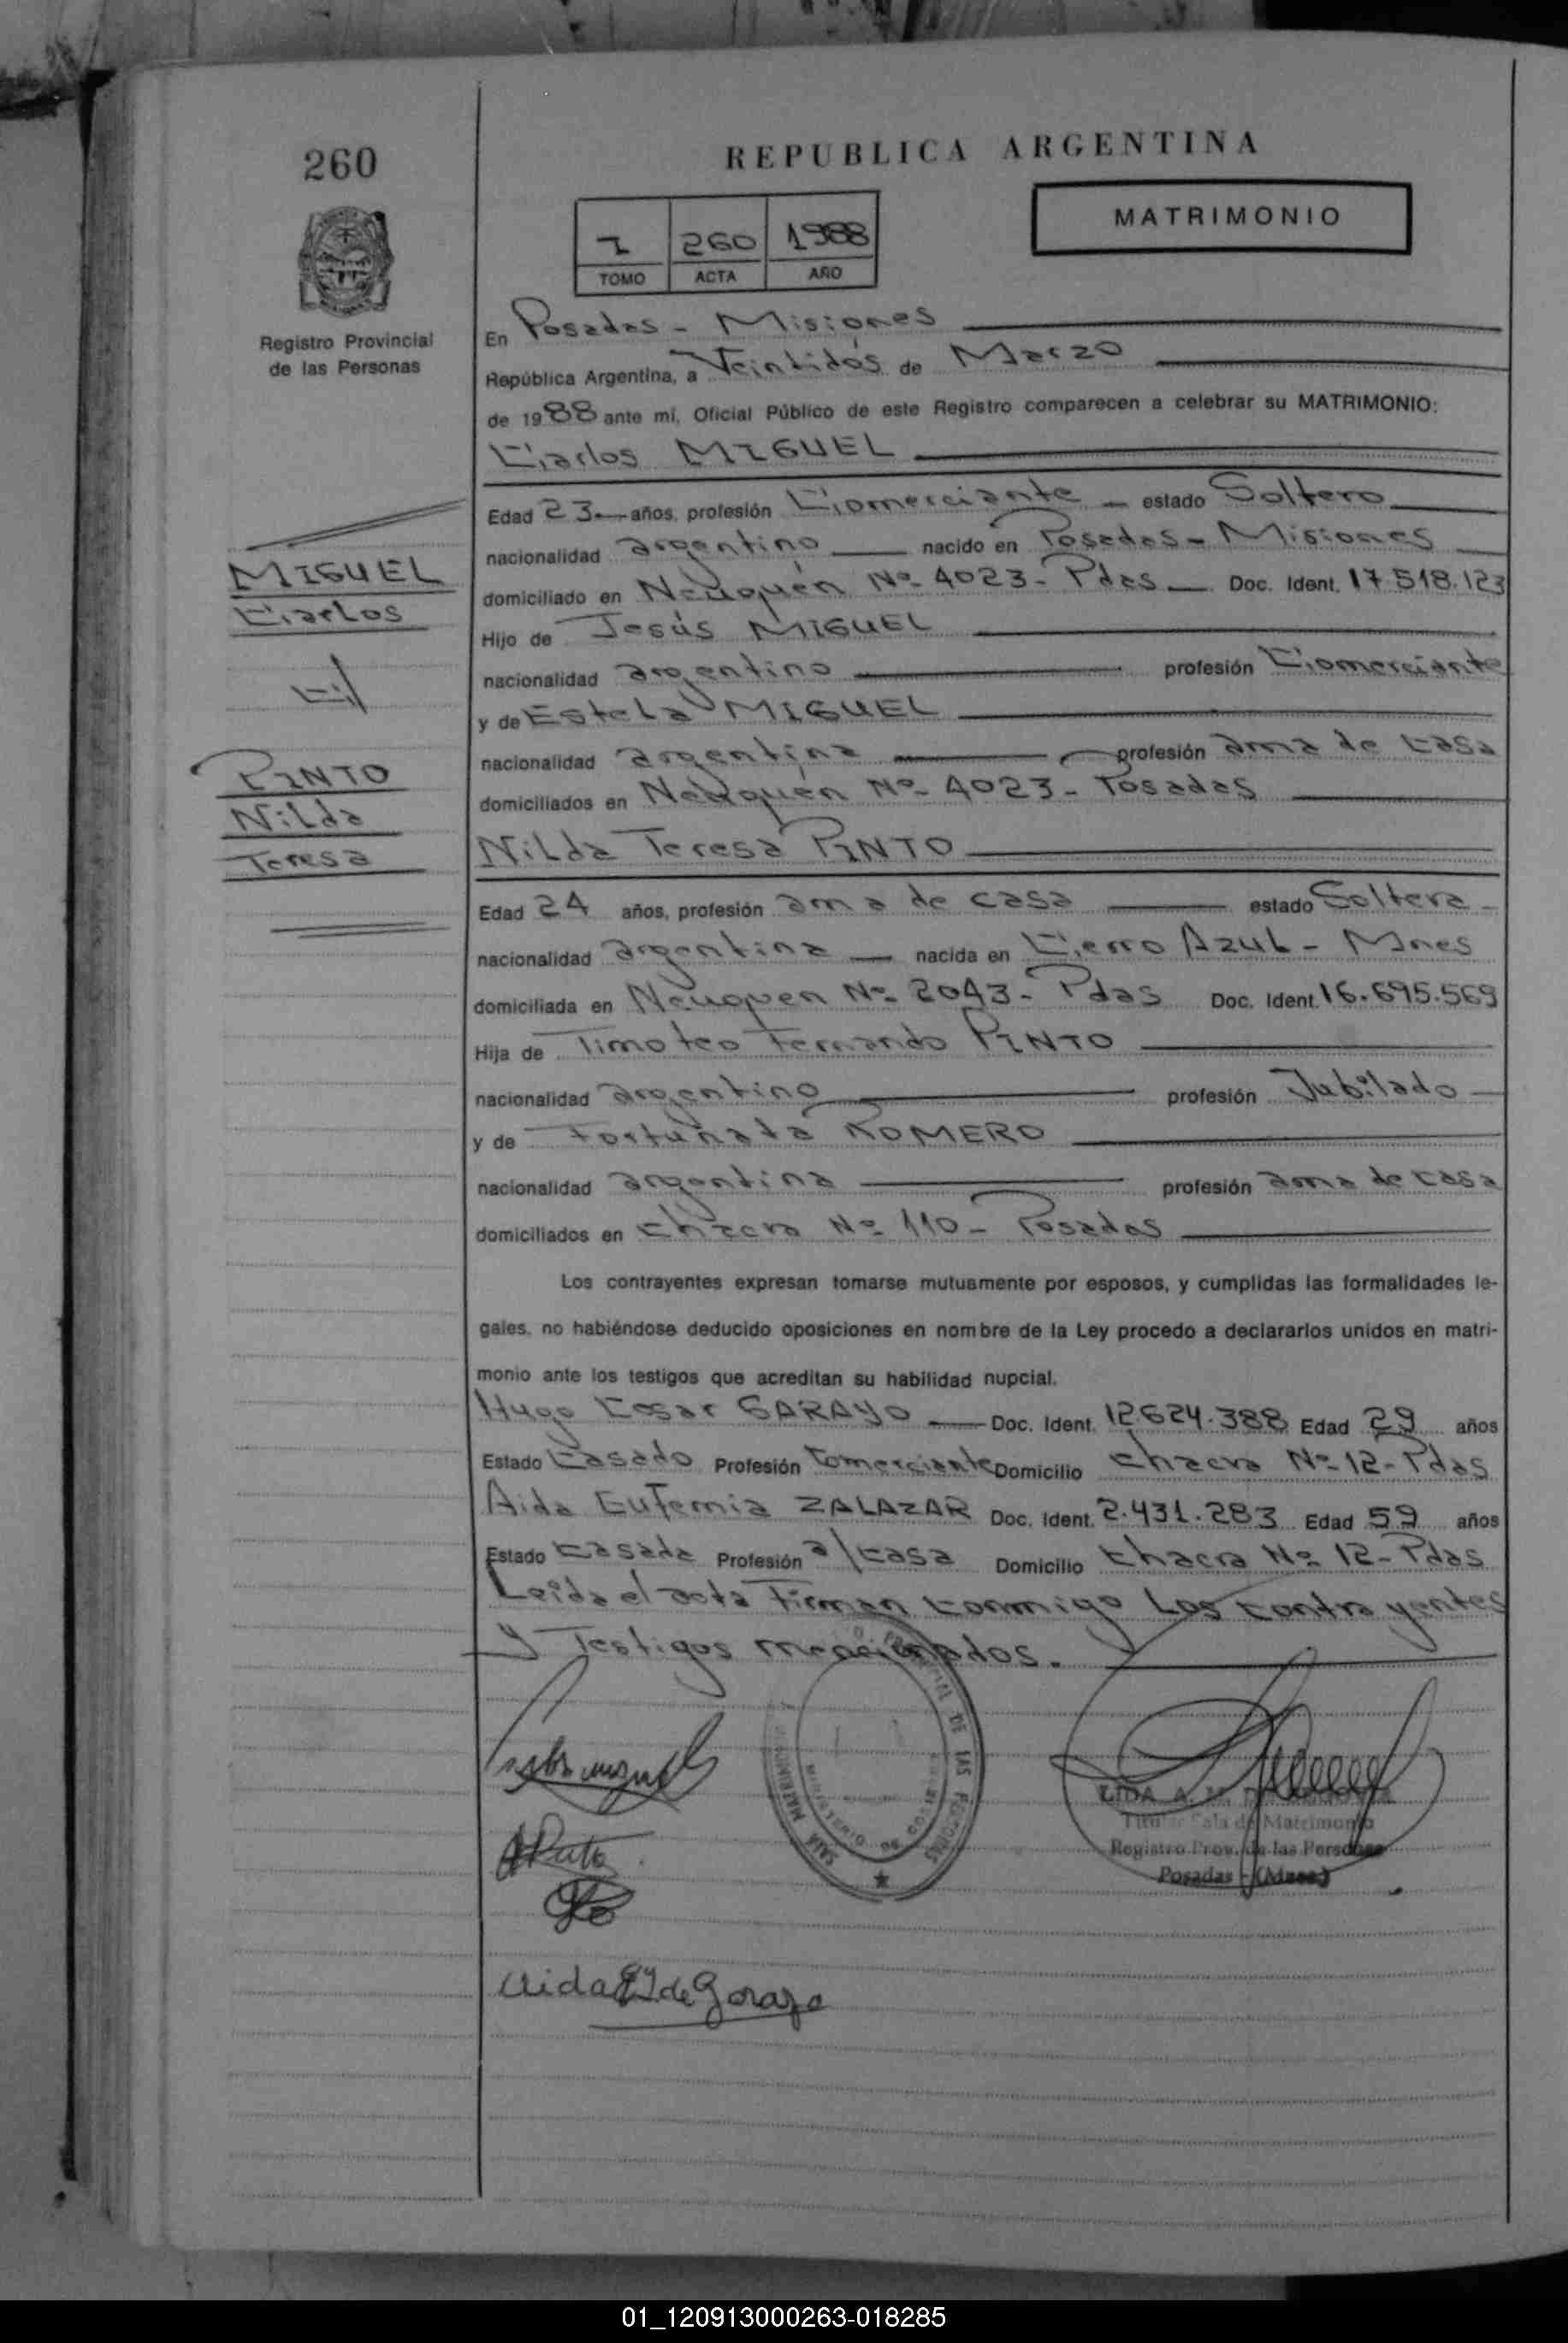 260
REPUBLICA ARGENTINA
MATRIMONIO
I 260 1988
TOMO ACTA AÑO
Registro Provincial
de las Personas
En Posadas - Misiones
República Argentina, a Veintidós de Marzo
de 1988 ante mí, Oficial Público de este Registro comparecen a celebrar su MATRIMONIO:
Carlos MIGUEL
Edad 23 años, profesión Comerciante estado Soltero
nacionalidad argentino nacido en Posadas - Misiones
domiciliado en Neuquén Nº 4023 - Pdas Doc. Ident. 17.518.123
Hijo de Jesús MIGUEL
nacionalidad argentino profesión Comerciante
y de Estela MIGUEL
nacionalidad argentina profesión ama de casa
domiciliados en Neuquén Nº 4023 - Posadas
MIGUEL
Carlos
C/
PINTO
Nilda
Teresa
Nilda Teresa PINTO
Edad 24 años, profesión ama de casa estado Soltera
nacionalidad argentina nacida en Cerro Azul - Mnes
domiciliada en Neuquen Nº 2043 - Pdas Doc. Ident. 16.695.569
Hija de Timoteo Fernando PINTO
nacionalidad argentino profesión Jubilado
y de Fortunata ROMERO
nacionalidad argentina profesión ama de casa
domiciliados en chacra Nº 110 - Posadas
Los contrayentes expresan tomarse mutuamente por esposos, y cumplidas las formalidades le-
gales, no habiéndose deducido oposiciones en nombre de la Ley procedo a declararlos unidos en matri-
monio ante los testigos que acreditan su habilidad nupcial.
Hugo Cesar GARAYO Doc. Ident. 12.624.388 Edad 29 años
Estado Casado Profesión Comerciante Domicilio chacra Nº 12 - Pdas
Aida Eufemia ZALAZAR Doc. Ident. 2.431.283 Edad 59 años
Estado Casada Profesión a/casa Domicilio chacra Nº 12 - Pdas
Leida el acta Firman conmigo los contrayentes
y Testigos mencionados.
DE LAS PERSONAS
SALA MATRIMONIO
LIDA A.
Titular Sala de Matrimonio
Registro Prov. de las Personas
Posadas - (Mnes)
Aida de Garayo
01_120913000263-018285